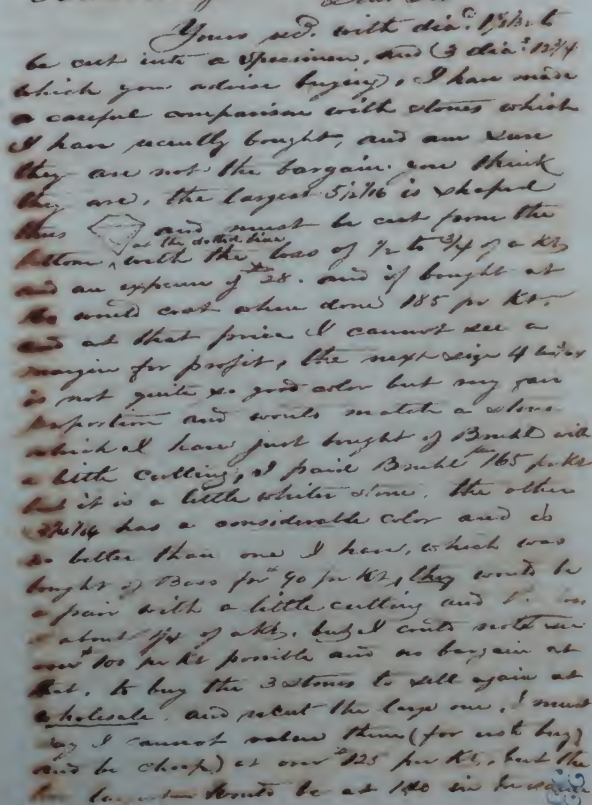 Yours recd. with diad.
be cut into a specimen, and (3 dias. 12 3/4
which you advise buying). I have made
a careful comparison with stones which
I have recently bought, and am sure
they are not the bargain you think
they are, the largest 5 1/2 1/16 is shaped
thus and must be cut from the
at the dotted line
bottom with the loss of 1/2 to 3/4 of a Kt
and an expense of $28. and if bought at
would cost when done 185 pr Kt.
and at that price I cannot see a
margin for profit, the next size 4
is not quite so good color but very fair
proportion and would match a stone
which I have just bought of Bruhl with
a little cutting, I paid Bruhl $165 pr Kt
but it is a little whiter stone. the other
has a considerable color and is
no better than one I have, which was
bought of Bass for $90 pr Kt, they would be
a pair with a little cutting and loss
of about 1/4 of a Kt. but I could not see
over $100 pr Kt possible and no bargain at
that. to buy the 3 stones to sell again at
wholesale and recut the large one, I must
say I cannot value them (for us to buy)
and be cheap) at over $125 pr Kt, but the
would be at 140 in